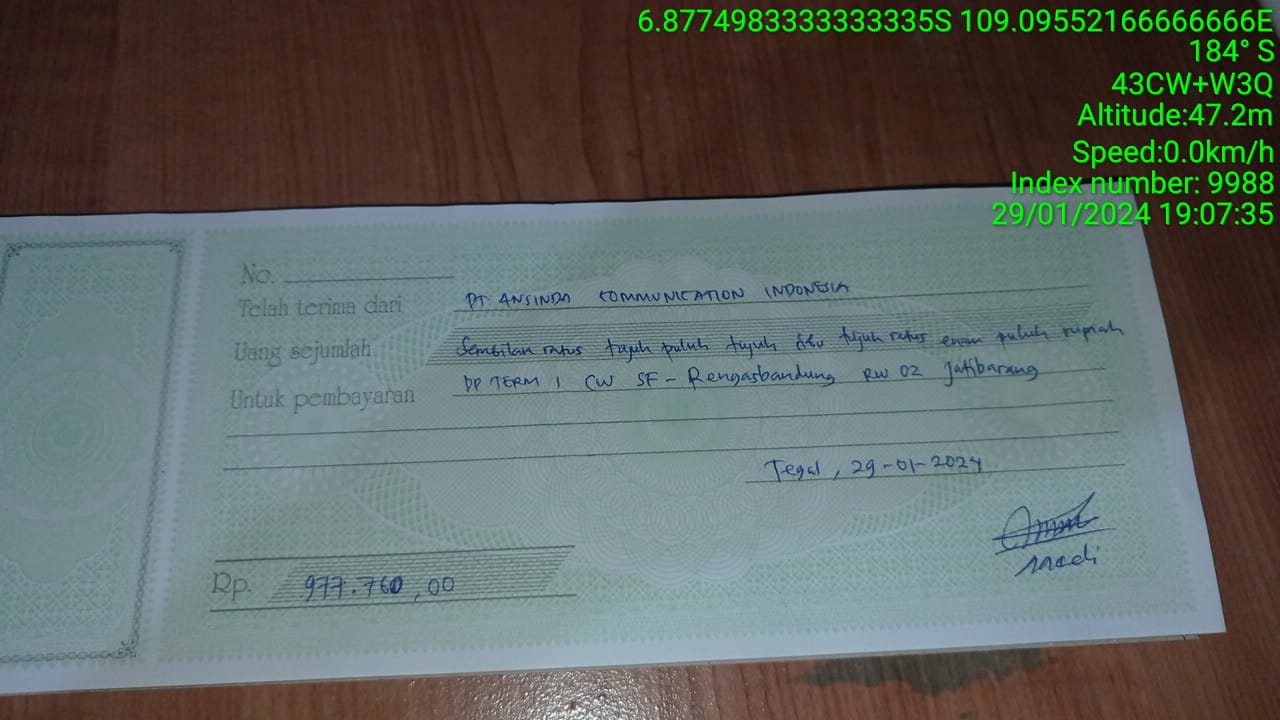 6.8774983333333335S 109.09552166666666E
184° S
43CW+W3Q
Altitude:47.2m
Speed:0.0km/h
Index number: 9988
29/01/2024 19:07:35
No.
Telah terima dari PT ANSINDA COMMUNICATION INDONESIA
Uang sejumlah Sembilan ratus tujuh puluh tujuh ribu tujuh ratus enam puluh rupiah
Untuk pembayaran DP TERM 1 CW SF - Rengasbandung RW 02 Jatibarang
Tegal, 29-01-2024
Rp. 977.760,00